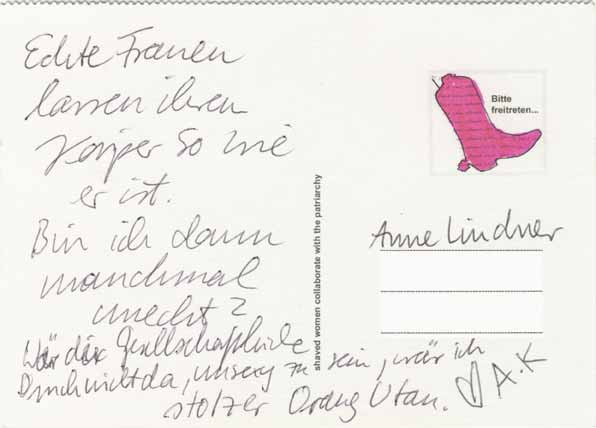 Echte Frauen
lassen ihren
Körper so wie
er ist.
Bin ich dann
manchmal
unecht?
Wär der gesellschaftliche
Druck nicht da, unsexy zu sein, wär ich
stolzer Orang Utan. ♡ A.K
shaved women collaborate with the patriarchy
Bitte
freitreten...
Anne Lindner